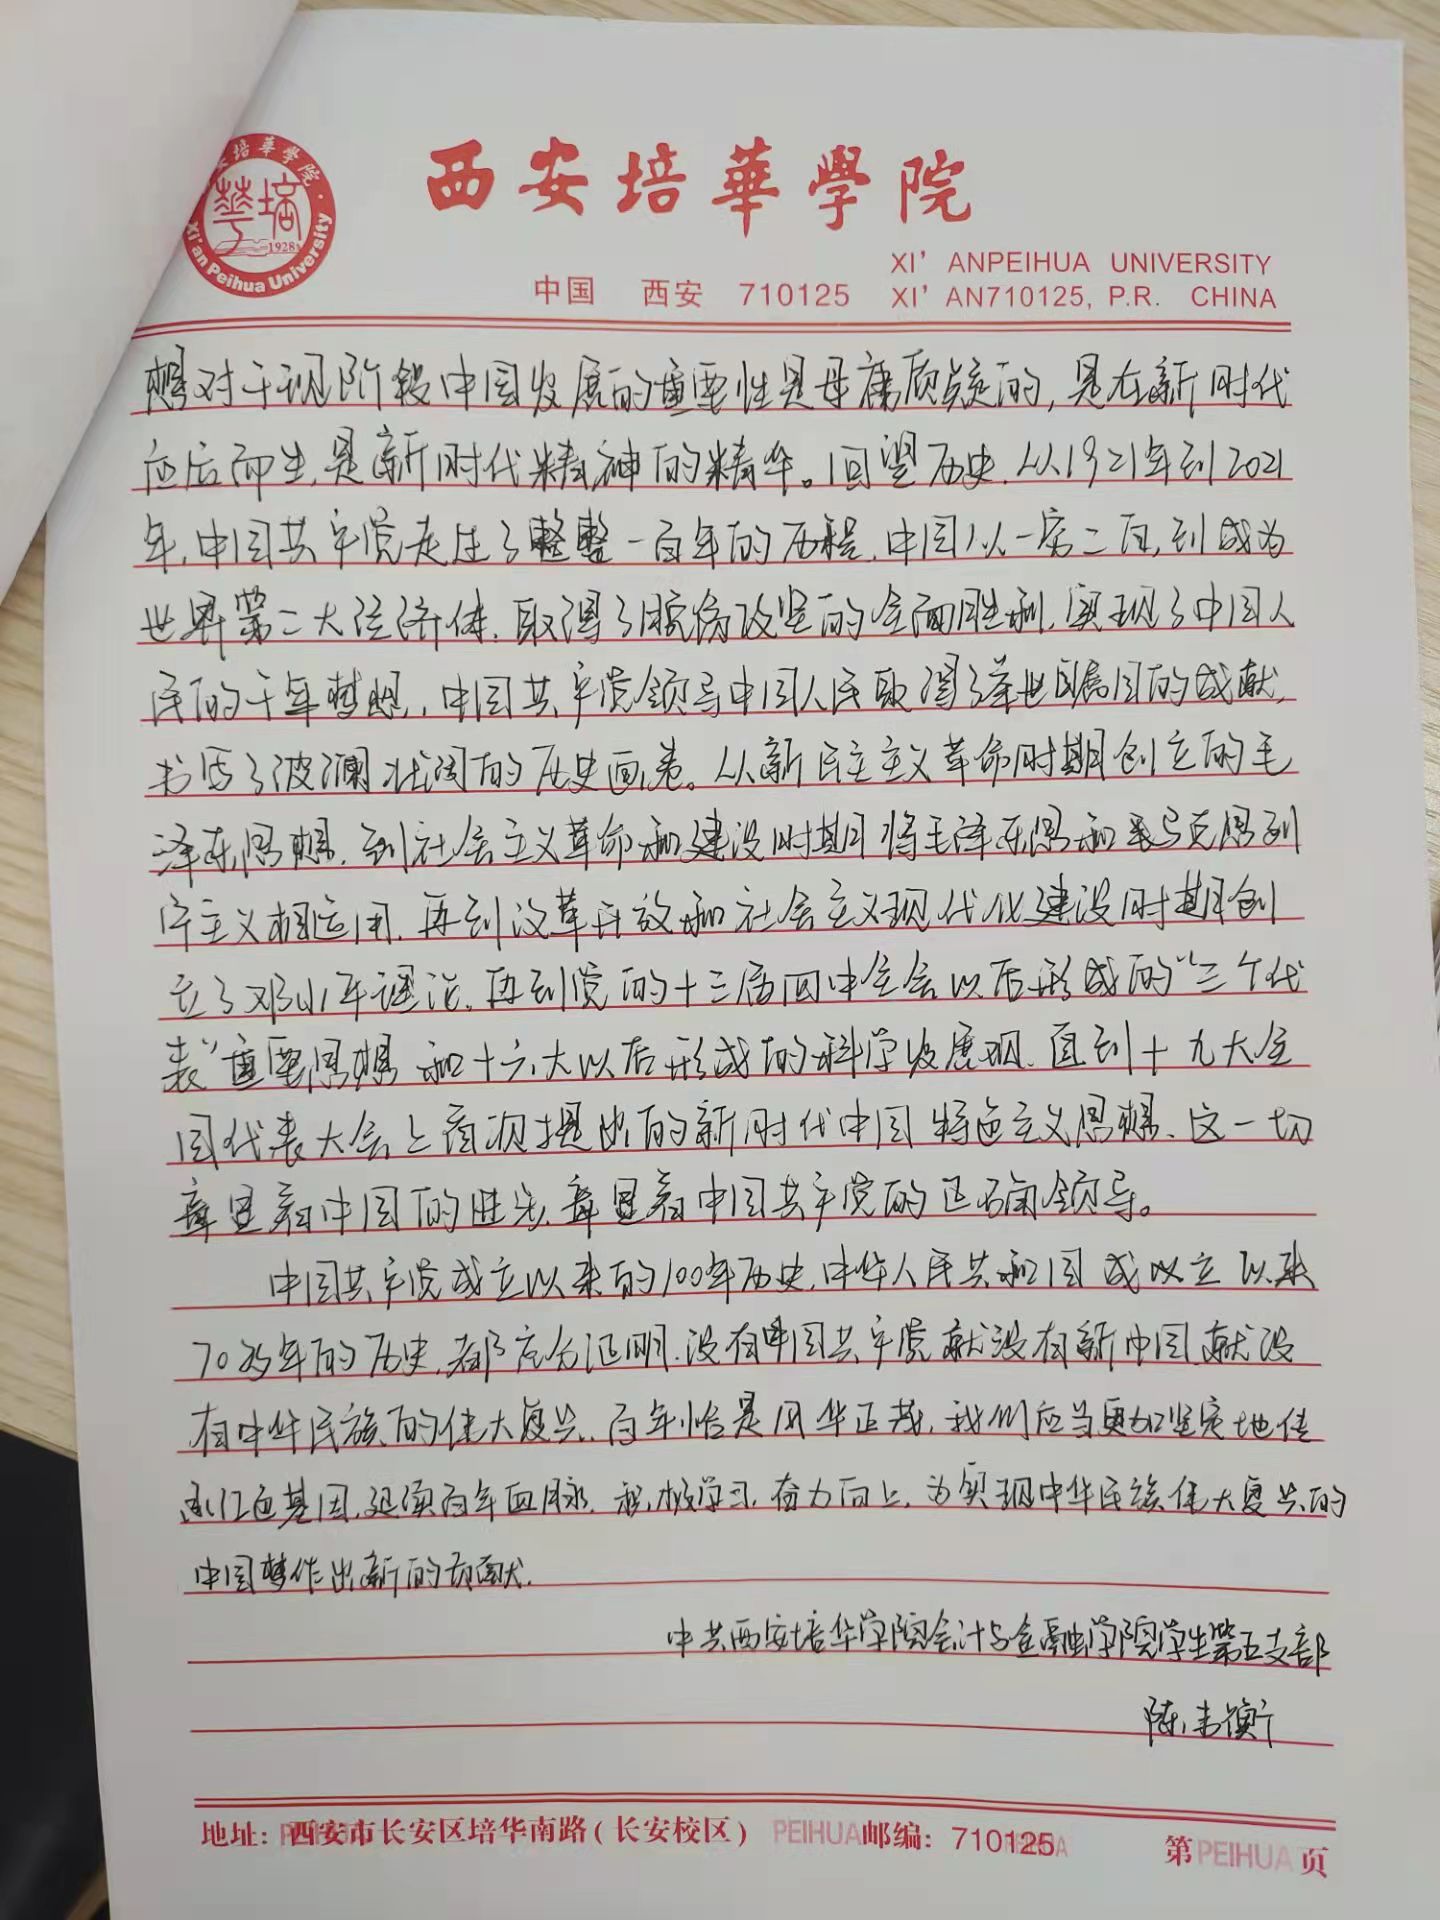 西安培華學院
培華學院
華培
1928
Xi'an Peihua University
XI' ANPEIHUA UNIVERSITY
中国 西安 710125 XI' AN710125, P.R. CHINA
想对于现阶段中国发展的重要性是毋庸质疑的,是在新时代
应后而生,是新时代精神的精华。回望历史,从1921年到2021
年,中国共产党走过了整整一百年的历程,中国从一穷二白,到成为
世界第二大经济体,取得了脱贫攻坚的全面胜利,实现了中国人
民的千年梦想,中国共产党领导中国人民取得了举世瞩目的成就,
书写了波澜壮阔的历史画卷。从新民主主义革命时期创立的毛
泽东思想,到社会主义革命和建设时期将毛泽东思和马克思列
宁主义相运用,再到改革开放和社会主义现代化建设时期创
立了邓小平理论,再到党的十三届四中全会以后形成的“三个代
表”重要思想和十六大以后形成的科学发展观,直到十九大全
国代表大会上首次提出的新时代中国特色主义思想,这一切
章显着中国的进步,章显着中国共产党的正确领导。
中国共产党成立以来的100年历史,中华人民共和国成以立以来
70多年的历史,都充分证明,没有中国共产党就没有新中国,就没
有中华民族的伟大复兴,百年恰是风华正茂,我们应当更加坚定地传
承红色基因,延续百年血脉,积极学习,奋力向上,为实现中华民族伟大复兴的
中国梦作出新的贡献.
中共西安培华学院会计与金融学院学生第五支部
陈 衡
地址: 西安市长安区培华南路(长安校区) PEIHUA 邮编: 710125 第 PEIHUA 页